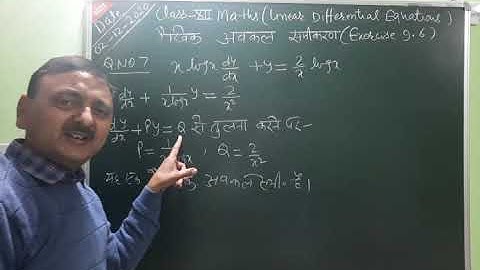 Date
02-12-2020
(Class-XII Maths (Linear Differential Equations)
रैखिक अवकल समीकरण (Exercise 9.6)
Q NO 7 x logx dy/dx + y = 2/x logx
dy/dx + 1/xlogx y = 2/x²
dy/dx + Py = Q से तुलना करने पर-
P = 1/ x , Q = 2/x²
यह एक अवकल है।